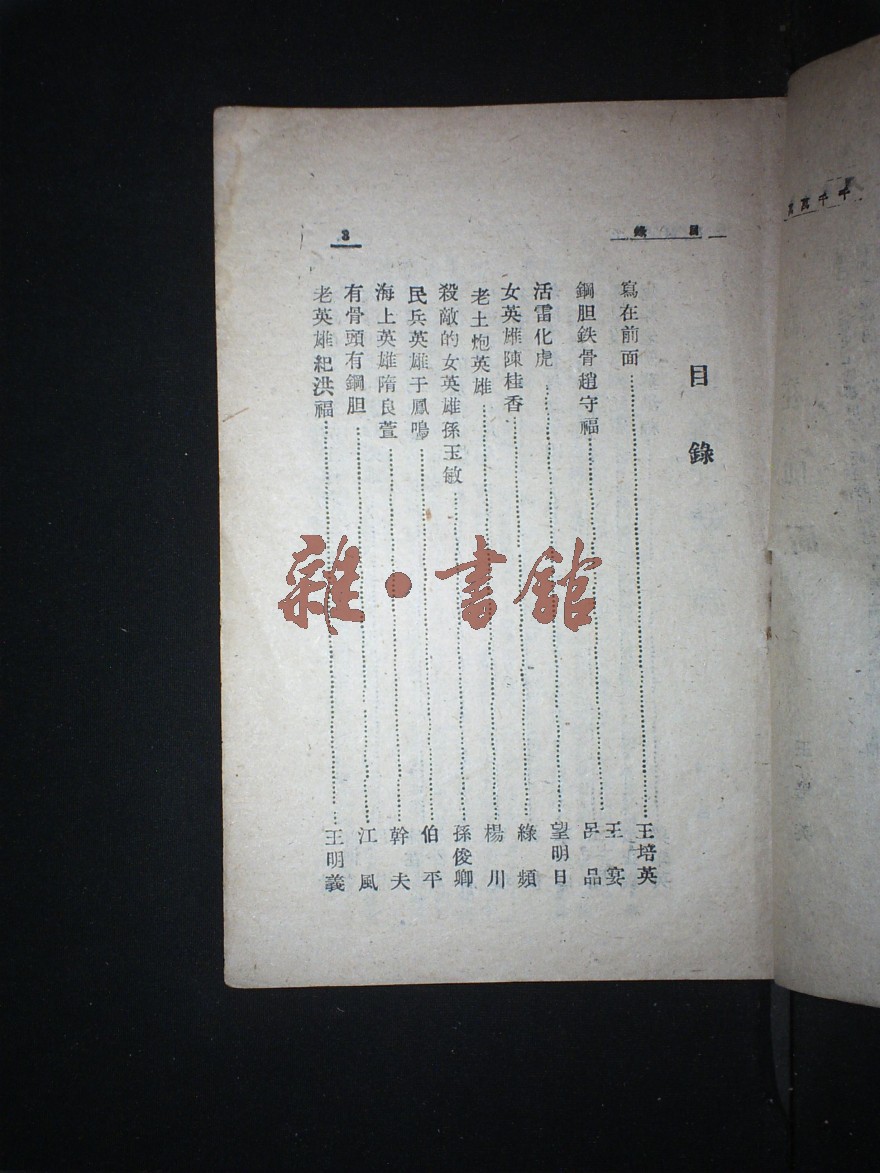 目錄
3
目錄
寫在前面……王培英
鋼胆鉄骨趙守福……王宴 呂品
活雷化虎……望明日
女英雄陳桂香……綠頻
老土炮英雄……楊川
殺敵的女英雄孫玉敏……孫俊卿
民兵英雄于鳳鳴……伯平
海上英雄隋良萱……幹夫
有骨頭有鋼胆……江風
老英雄紀洪福……王明義
雜·書館